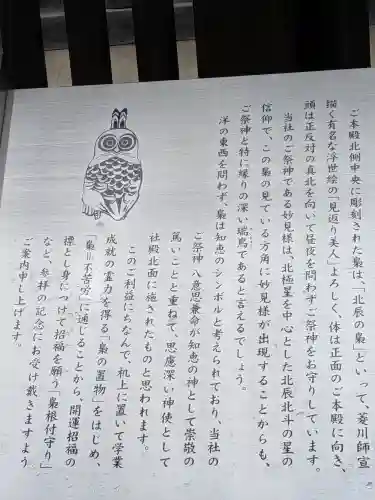 ご本殿北側中央に彫刻された梟は、「北辰の梟」といって、菱川師宣
描く有名な浮世絵の「見返り美人」よろしく、体は正面のご本殿に向き、
頭は正反対の真北を向いて昼夜を問わずご祭神をお守りしています。
当社のご祭神である妙見様は、北極星を中心とした北辰北斗の星の
信仰で、この梟の見ている方角に妙見様が出現することからも、
ご祭神と特に縁りの深い瑞鳥であると言えるでしょう。
洋の東西を問わず、梟は知恵のシンボルと考えられており、当社の
ご祭神 八意思兼命が知恵の神として崇敬の
篤いことと重ねて、思慮深い神使として
社殿北面に施されたものと思われます。
このご利益にちなんで、机上に置いて学業
成就の霊力を得る「梟の置物」をはじめ、
「梟=不苦労」に通じることから、開運招福の
標として身につけて招福を願う「梟根付守り」
など、参拝の記念にお受け戴きますよう
ご案内申し上げます。